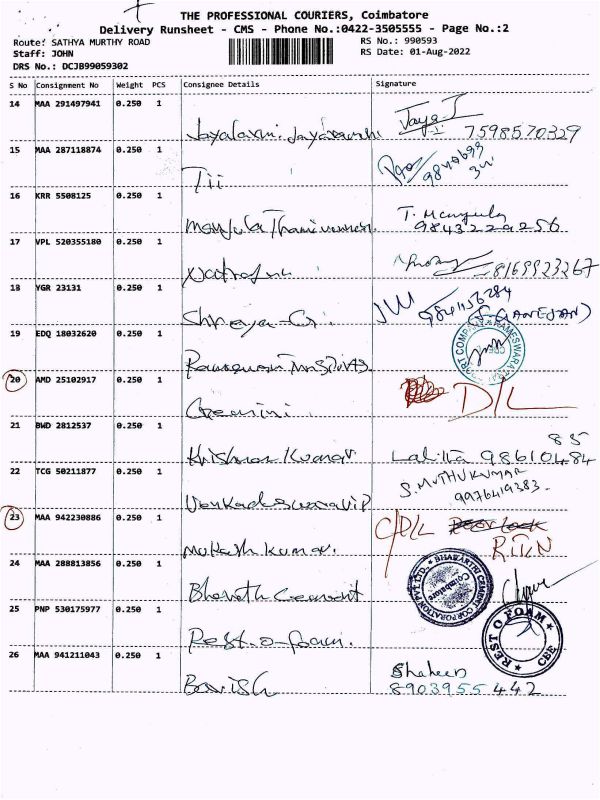 THE PROFESSIONAL COURIERS, Coimbatore
Delivery Runsheet - CMS - Phone No.:0422-3505555 - Page No.:2
Route: SATHYA MURTHY ROAD
RS No.: 990593
Staff: JOHN
RS Date: 01-Aug-2022
DRS No.: DCJB99059302
S No Consignment No Weight PCS Consignee Details Signature
14 MAA 291497941 0.250 1
Jaya J
7598570329
15 MAA 287118874 0.250 1
Tii
16 KRR 5508125 0.250 1
T. Manjula
9843229256
17 VPL 520355180 0.250 1
8169923267
18 YGR 23131 0.250 1
Shreya-G.
(J. GANESAN)
19 EDQ 18032620 0.250 1
20 AMD 25102917 0.250 1
Gemini
D/L
21 BWD 2812537 0.250 1
Krishna Kumar
Lalitha 98610484
85
22 TCG 50211877 0.250 1
S. MUTHUKUMAR
9976419383.
23 MAA 942230886 0.250 1
Mukesh Kumar.
C/D/L Door Lock
RTN
24 MAA 288813856 0.250 1
Bharath Cement
BHARATHI CEMENT CORPORATION PVT LTD.
Coimbatore
25 PNP 530175977 0.250 1
Rest-o-foam.
REST O FOAM
CBE
26 MAA 941211043 0.250 1
Shaheen
8903955442